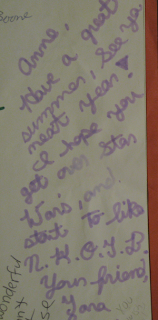 Boone
Anne,
Have a great
summer, See ya
next year!
I hope you
get over Star
Wars, and
start to like
N.K.O.T.B.
Your friend,
Yara
wonderful